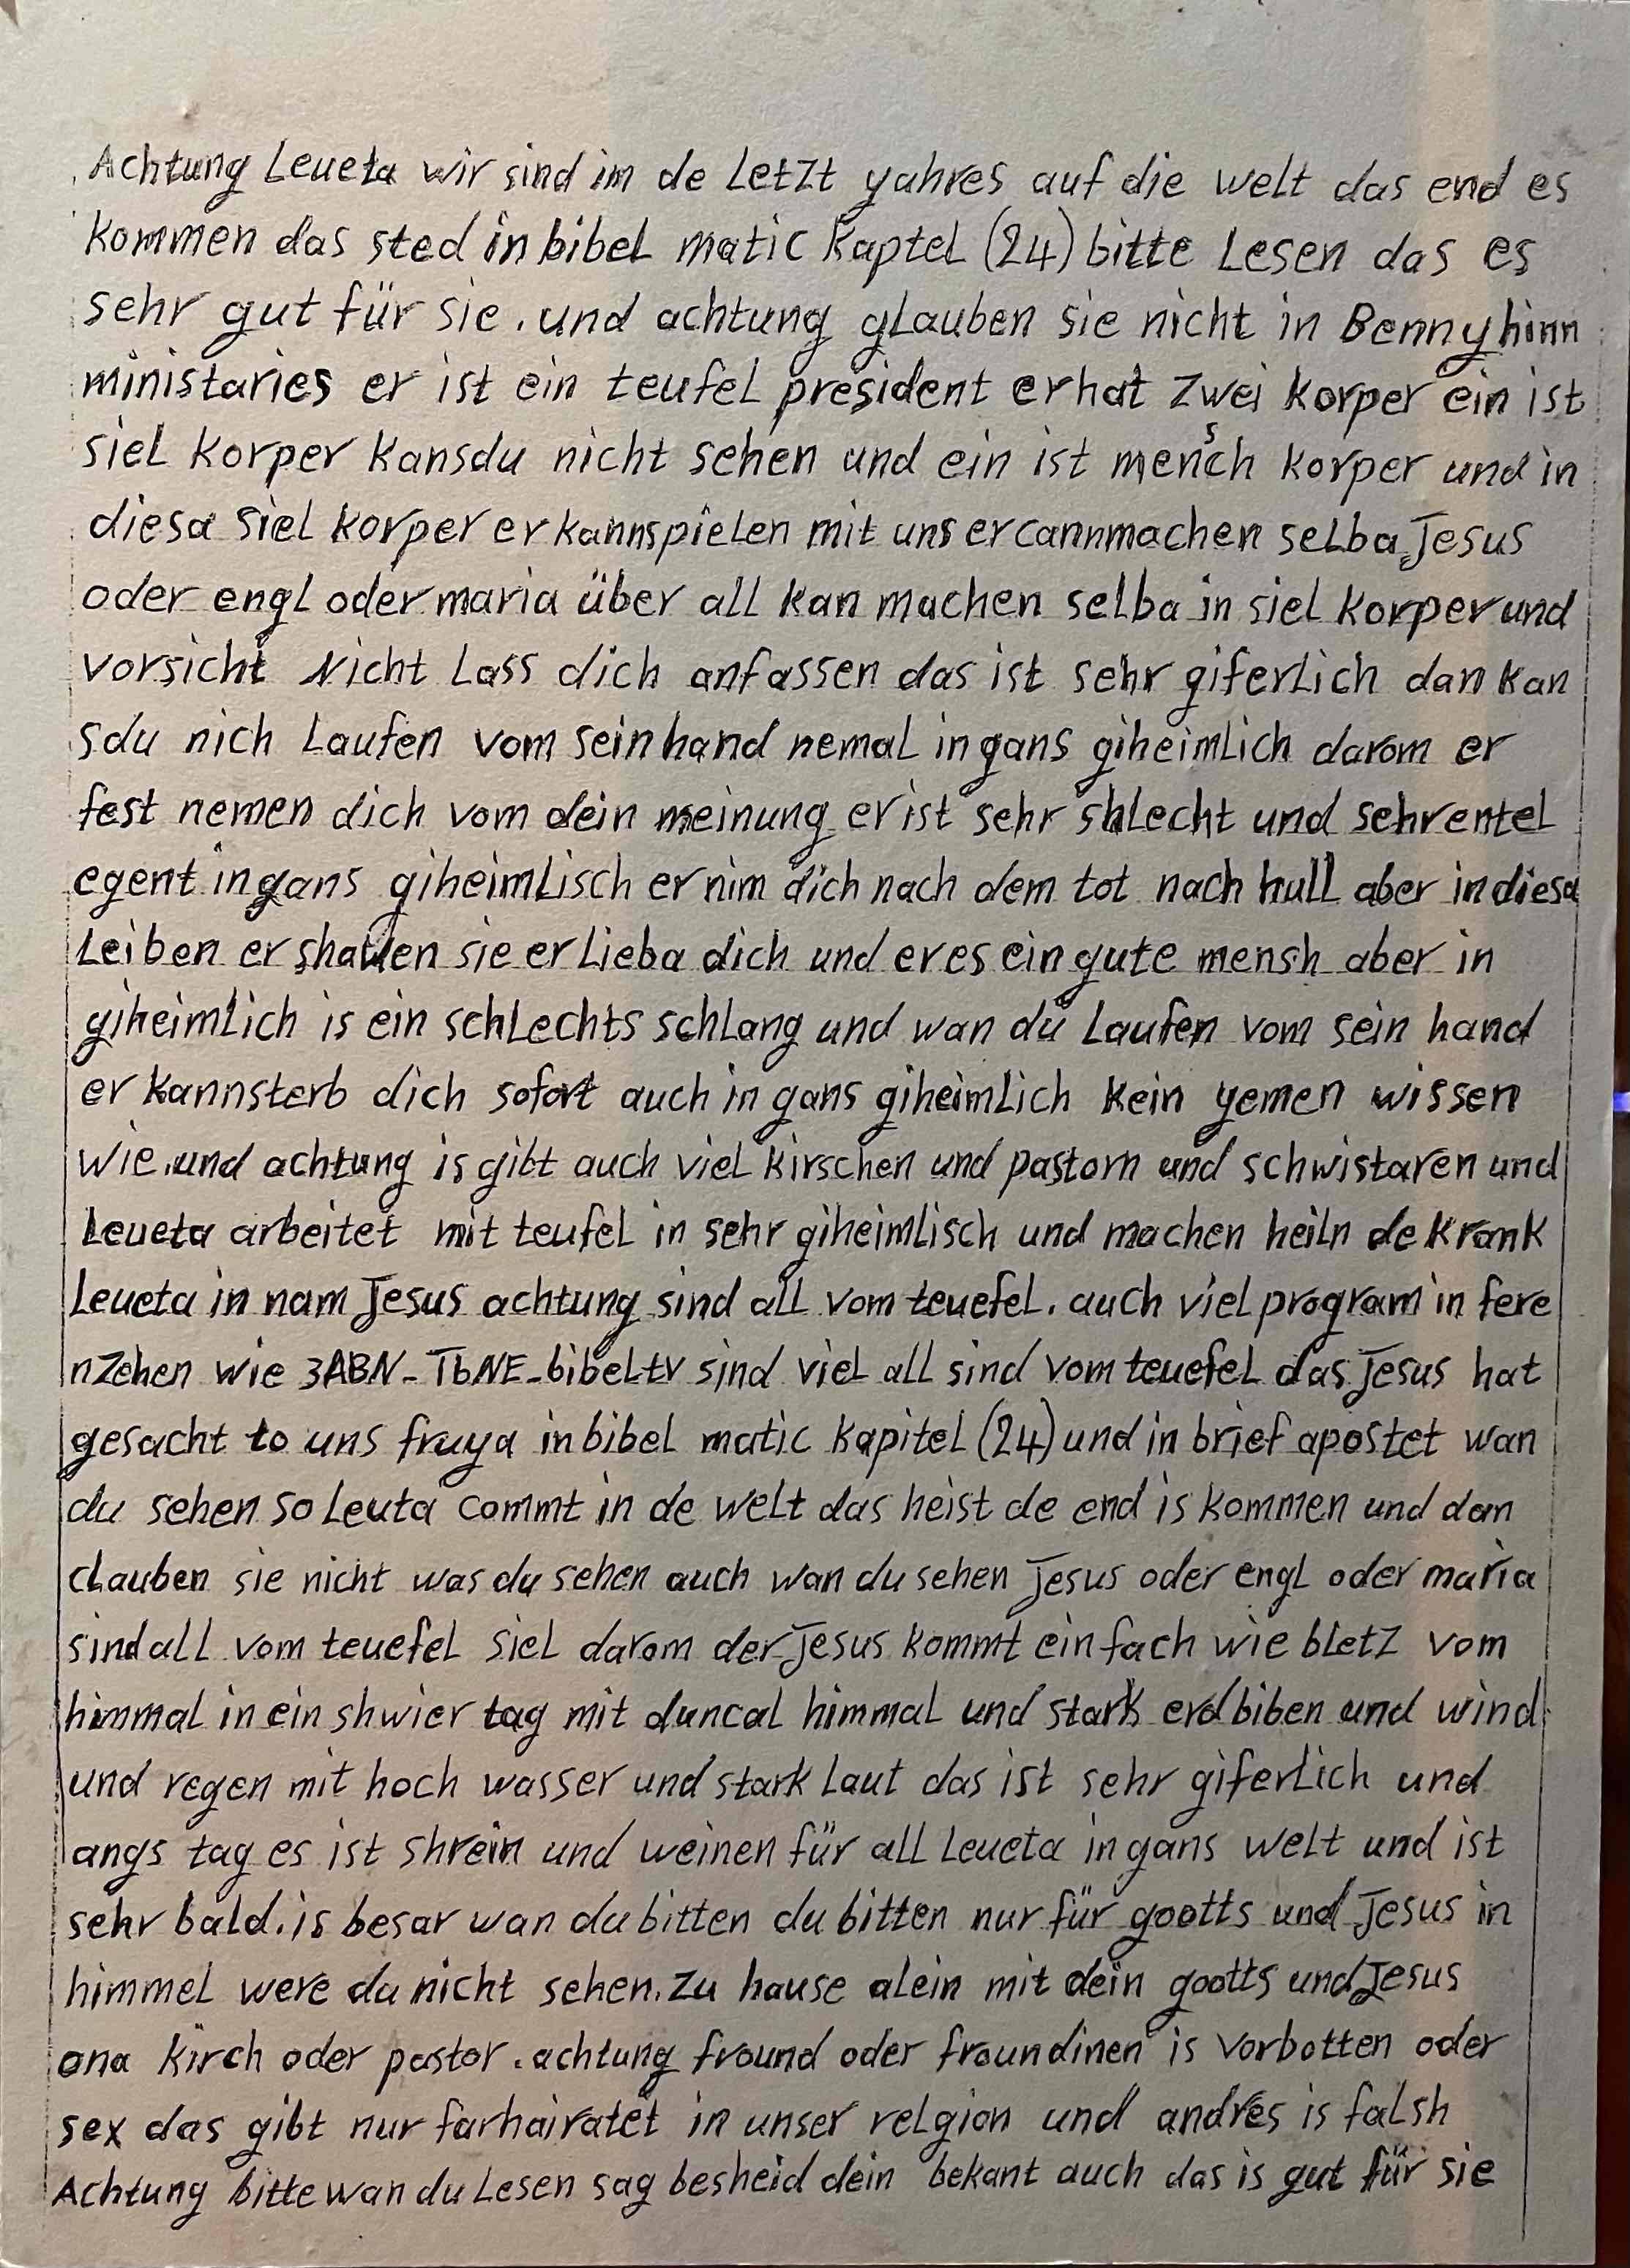 Achtung Leueta wir sind im de Letzt yahres auf die welt das end es
kommen das sted in bibel matic Kaptel (24) bitte Lesen das es
sehr gut für sie. und achtung glauben sie nicht in Benny hinn
ministaries er ist ein teufel president er hat zwei korper ein ist
siel korper kansdu nicht sehen und ein ist mensch korper und in
diesa siel korper er kannspielen mit uns er cannmachen selba Jesus
oder engl oder maria über all kan machen selba in siel korper und
vorsicht Nicht Lass dich anfassen das ist sehr giferlich dan kan
sdu nich Laufen vom sein hand nemal in gans giheimlich darom er
fest nemen dich vom dein meinung er ist sehr shlecht und sehrentel
egent in gans giheimlisch er nim dich nach dem tot nach hull aber in diesa
Leiben er shauen sie er Lieba dich und er es ein gute mensh aber in
giheimlich is ein schlechts schlang und wan du Laufen vom sein hand
er kannsterb dich sofort auch in gans giheimlich kein yemen wissen
wie. und achtung is gibt auch viel kirschen und pastorn und schwistaren und
Leueta arbeitet mit teufel in sehr giheimlisch und machen heiln de krank
Leueta in nam Jesus achtung sind all vom teuefel. auch viel program in fere
nzehen wie 3ABN-TbNE-bibel-tv sind viel all sind vom teuefel das Jesus hat
gesacht to uns fruya in bibel matic kapitel (24) und in brief apostet wan
du sehen so Leuta commt in de welt das heist de end is kommen und dan
clauben sie nicht was du sehen auch wan du sehen Jesus oder engl oder maria
sind all vom teuefel siel darom der Jesus kommt einfach wie bletz vom
himmal in ein shwier tag mit duncal himmal und stark erdbiben und wind
und regen mit hoch wasser und stark laut das ist sehr giferlich und
angs tag es ist shrein und weinen für all Leueta in gans welt und ist
sehr bald. is besar wan du bitten du bitten nur für gootts und Jesus in
himmel were da nicht sehen. zu hause alein mit dein gootts und Jesus
ona kirch oder pastor. achtung fround oder froundinen is vorbotten oder
sex das gibt nur farhairatet in unser relgion und andres is falsh
Achtung bitte wan du Lesen sag besheid dein bekant auch das is gut für sie